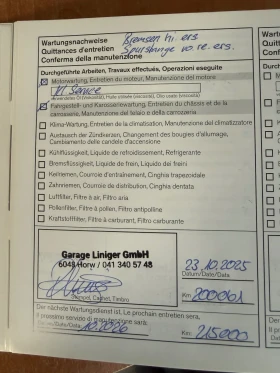 Wartungsnachweise
Quittances d'entretien
Conferma della manutenzione
Bremsen hi. ers
Spurstange vo. re. ers.
Durchgeführte Arbeiten, Travaux effectués, Operazioni eseguite
Motorwartung, Entretien du moteur, Manutenzione del motore
VI Service
Fahrgestell- und Karosseriewartung, Entretien du châssis et de la
carrosserie, Manutenzione del telaio e della carrozzeria
Klima-Wartung, Entretien de la climatisation, Manutenzione del climatizzatore
Austausch der Zündkerzen, Changement des bougies d'allumage,
Cambiamento delle candele d'accensione
Kühlflüssigkeit, Liquide de refroidissement, Refrigerante
Bremsflüssigkeit, Liquide de frein, Liquido dei freni
Keilriemen, Courroie d'entraînement, Cinghia trapezoidale
Zahnriemen, Courroie de distribution, Cinghia dentata
Luftfilter, Filtre à air, Filtro aria
Pollenfilter, Filtre à pollen, Filtro antipolline
Kraftstofffilter, Filtre à carburant, Filtro carburante
Garage Liniger GmbH
6048 Horw / 041 340 57 48
Stempel, Cachet, Timbro
23.10.2025
Datum/Date/Data
Km: 200061
Der nächste Wartungsdienst ist, Le prochain entretien sera,
Il prossimo servizio di manutenzione sarà:
Datum/Date/Data 10.2026
Km: 215000